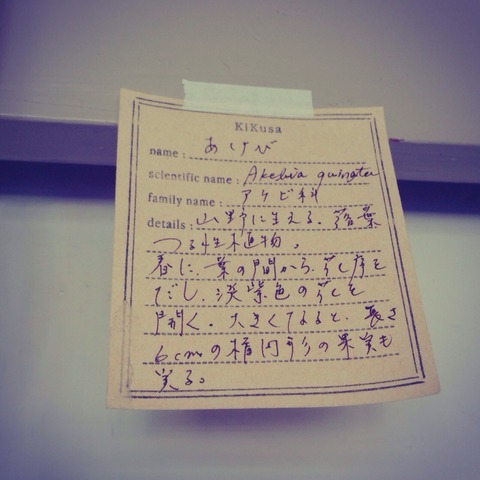 KiKusa
name : あけび
scientific name : Akebia quinata
family name : アケビ科
details : 山野に生える。落葉
つる性植物。
春に、葉の間から、花序を
だし、淡紫色の花を
開く。大きくなると、長さ
6cmの楕円形の果実も
実る。